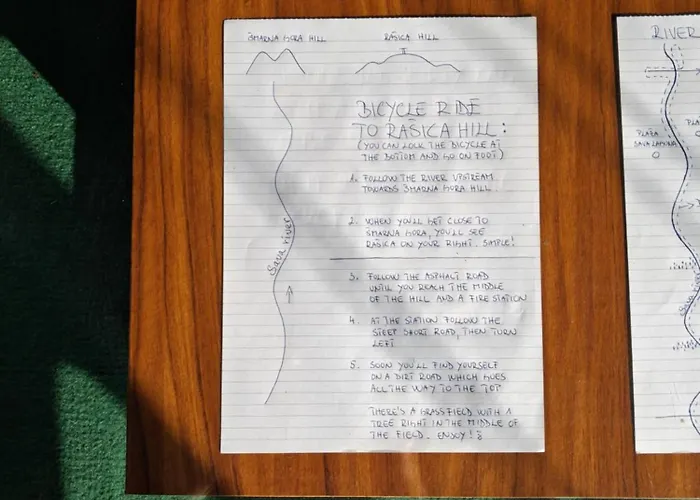 ŠMARNA GORA HILL
RAŠICA HILL
BICYCLE RIDE
TO RAŠICA HILL:
(YOU CAN LOCK THE BICYCLE AT
THE BOTTOM AND GO ON FOOT)
1. FOLLOW THE RIVER UPSTREAM
TOWARDS ŠMARNA GORA HILL.
2. WHEN YOU'LL GET CLOSE TO
ŠMARNA GORA, YOU'LL SEE
RAŠICA ON YOUR RIGHT. SIMPLE!
3. FOLLOW THE ASPHALT ROAD
UNTIL YOU REACH THE MIDDLE
OF THE HILL AND A FIRE STATION
4. AT THE STATION FOLLOW THE
STEEP SHORT ROAD, THEN TURN
LEFT
5. SOON YOU'LL FIND YOURSELF
ON A DIRT ROAD WHICH GOES
ALL THE WAY TO THE TOP
THERE'S A GRASSFIELD WITH 1
TREE RIGHT IN THE MIDDLE OF
THE FIELD. ENJOY!
Sava river
RIVER
PLAŽA
SAVA LAGUNA